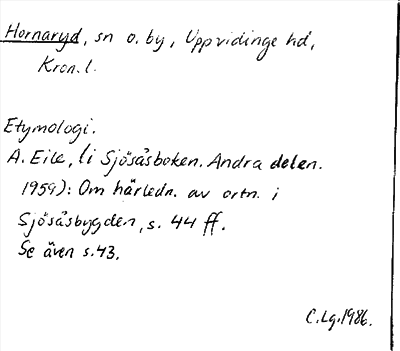 Hornaryd, sn o. by, Uppvidinge hd,
Kron. l.
Etymologi.
A. Eile, (i Sjösåsboken. Andra delen.
1959): Om härledn. av ortn. i
Sjösåsbygden, s. 44 ff.
Se även s. 43.
C. Lg. 1986.